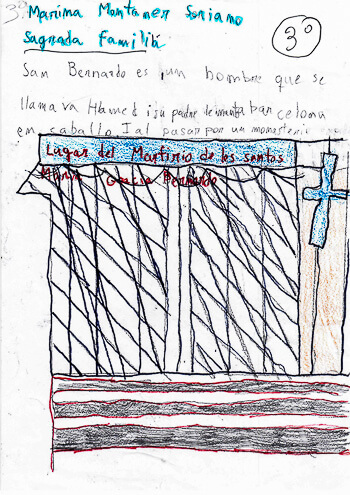 3º Marina Montaner Soriano
Sagrada Familia
3º
San Bernardo es un hombre que se
llamava Hamed i su padre
en caballo I al pasar por un monasterio
Lugar del Martirio de los santos
María Gracia Bernardo